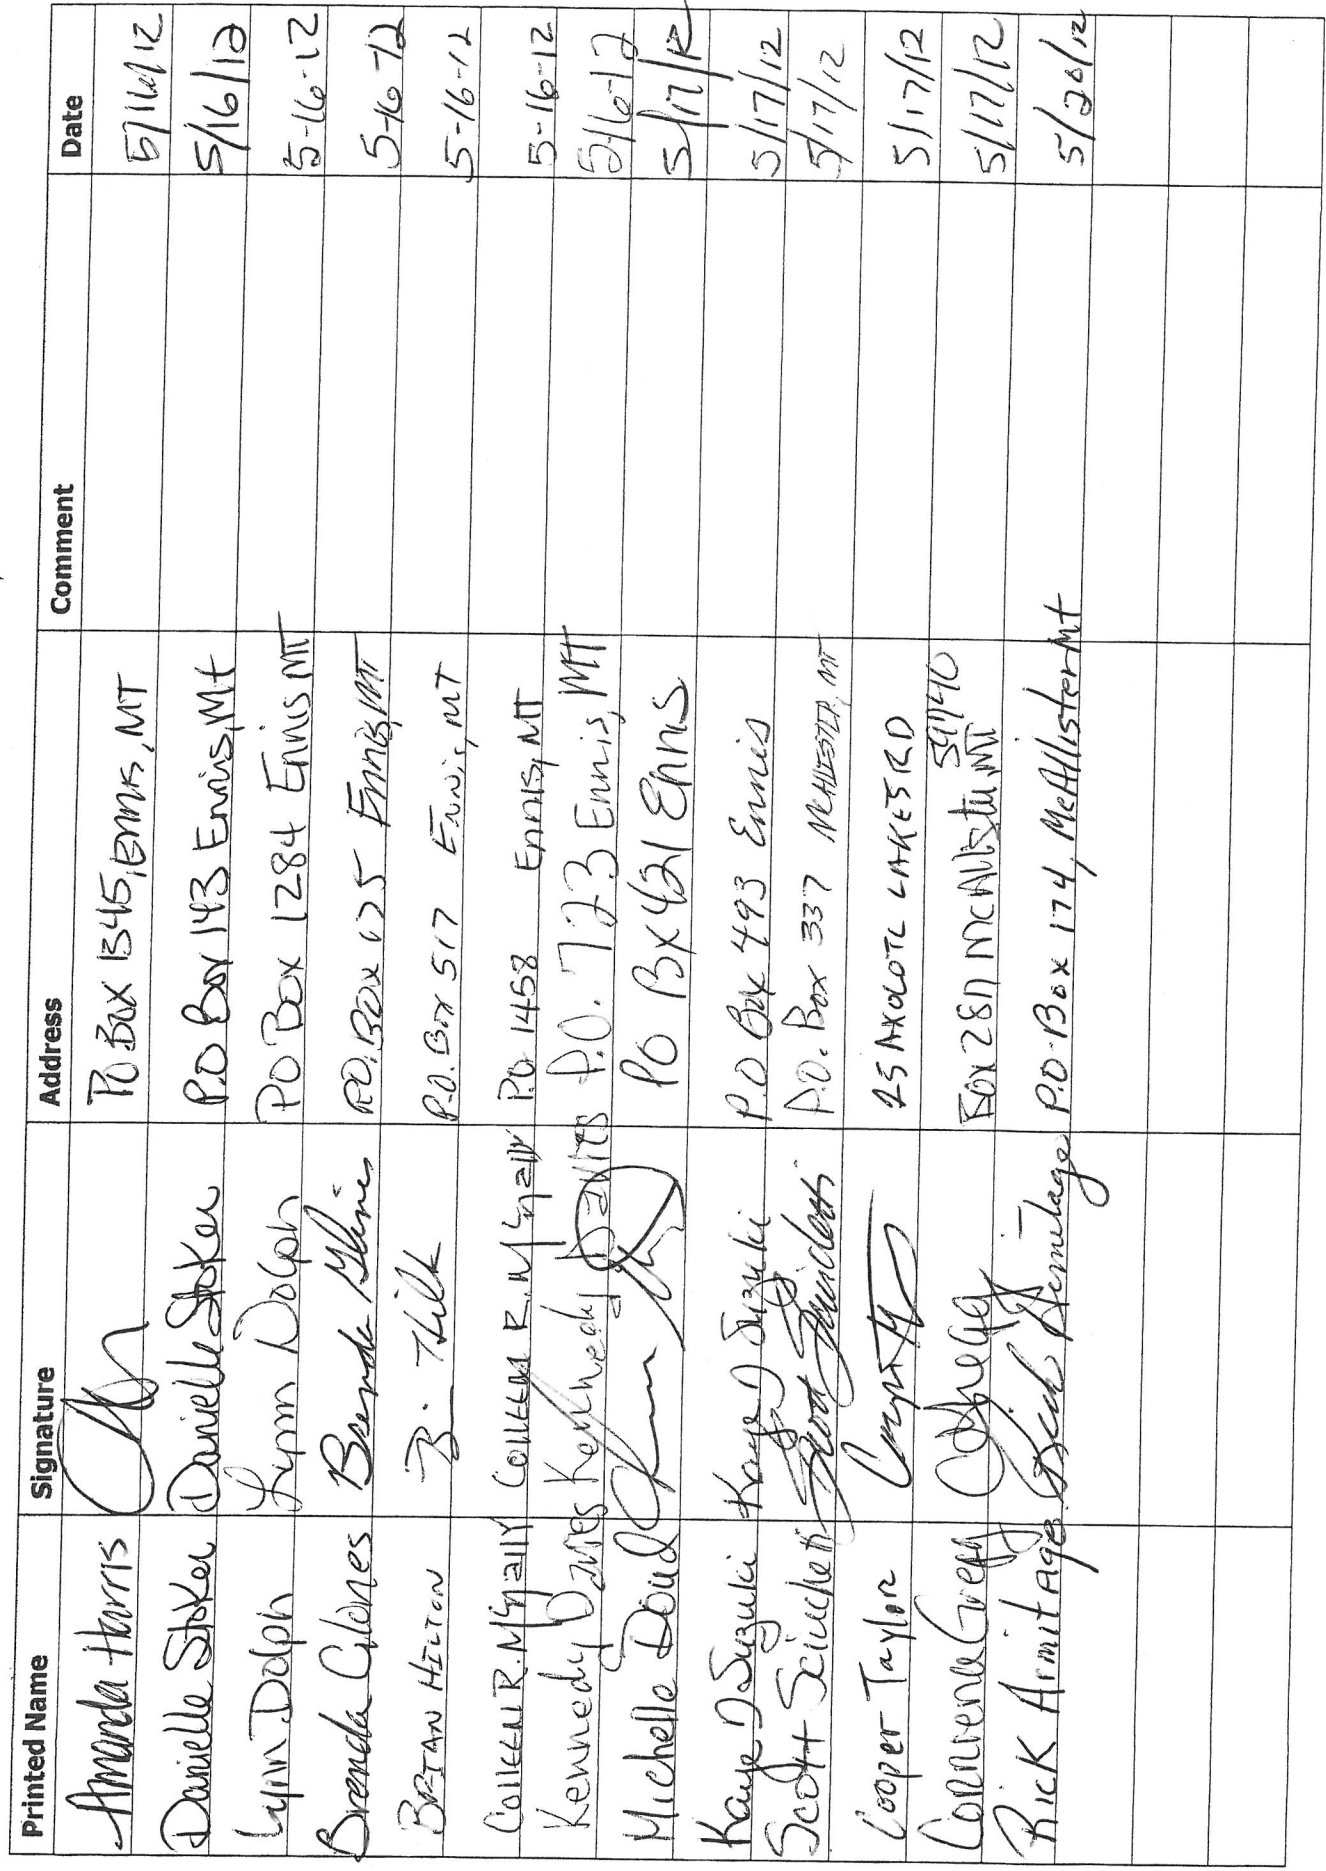 Printed Name Signature Address Comment Date
Amanda Harris PO Box 1345, Ennis, MT 5/16/12
Danielle Stoker Danielle Stoker P.O Box 143 Ennis, Mt 5/16/12
Lynn Dolph Lynn Dolph PO Box 1284 Ennis MT 5-16-12
Brenda P.O. Box 125 Ennis, MT 5-16-12
BRIAN HILTON B. P.O. Box 517 Ennis, MT 5-16-12
COllEEN R. COllEEN R. P.O. 1458 Ennis, MT 5-16-12
Kennedy Davies Kennedy Davies P.O. 723 Ennis, MT 5/16-12
Michelle Doud PO Bx 421 Ennis 5/17/12
Kaye D Suzuki Kaye D Suzuki P.O Box 493 Ennis 5/17/12
Scott Scott P.O. Box 337 MCALLISTER, MT 5/17/12
Cooper Taylor 25 AXOLOTL LAKES RD 5/17/12
Gregg Box 281 McAllister, MT 59740 5/17/12
Rick Armitage Rick Armitage P.O. Box 174, McAllister Mt 5/20/12